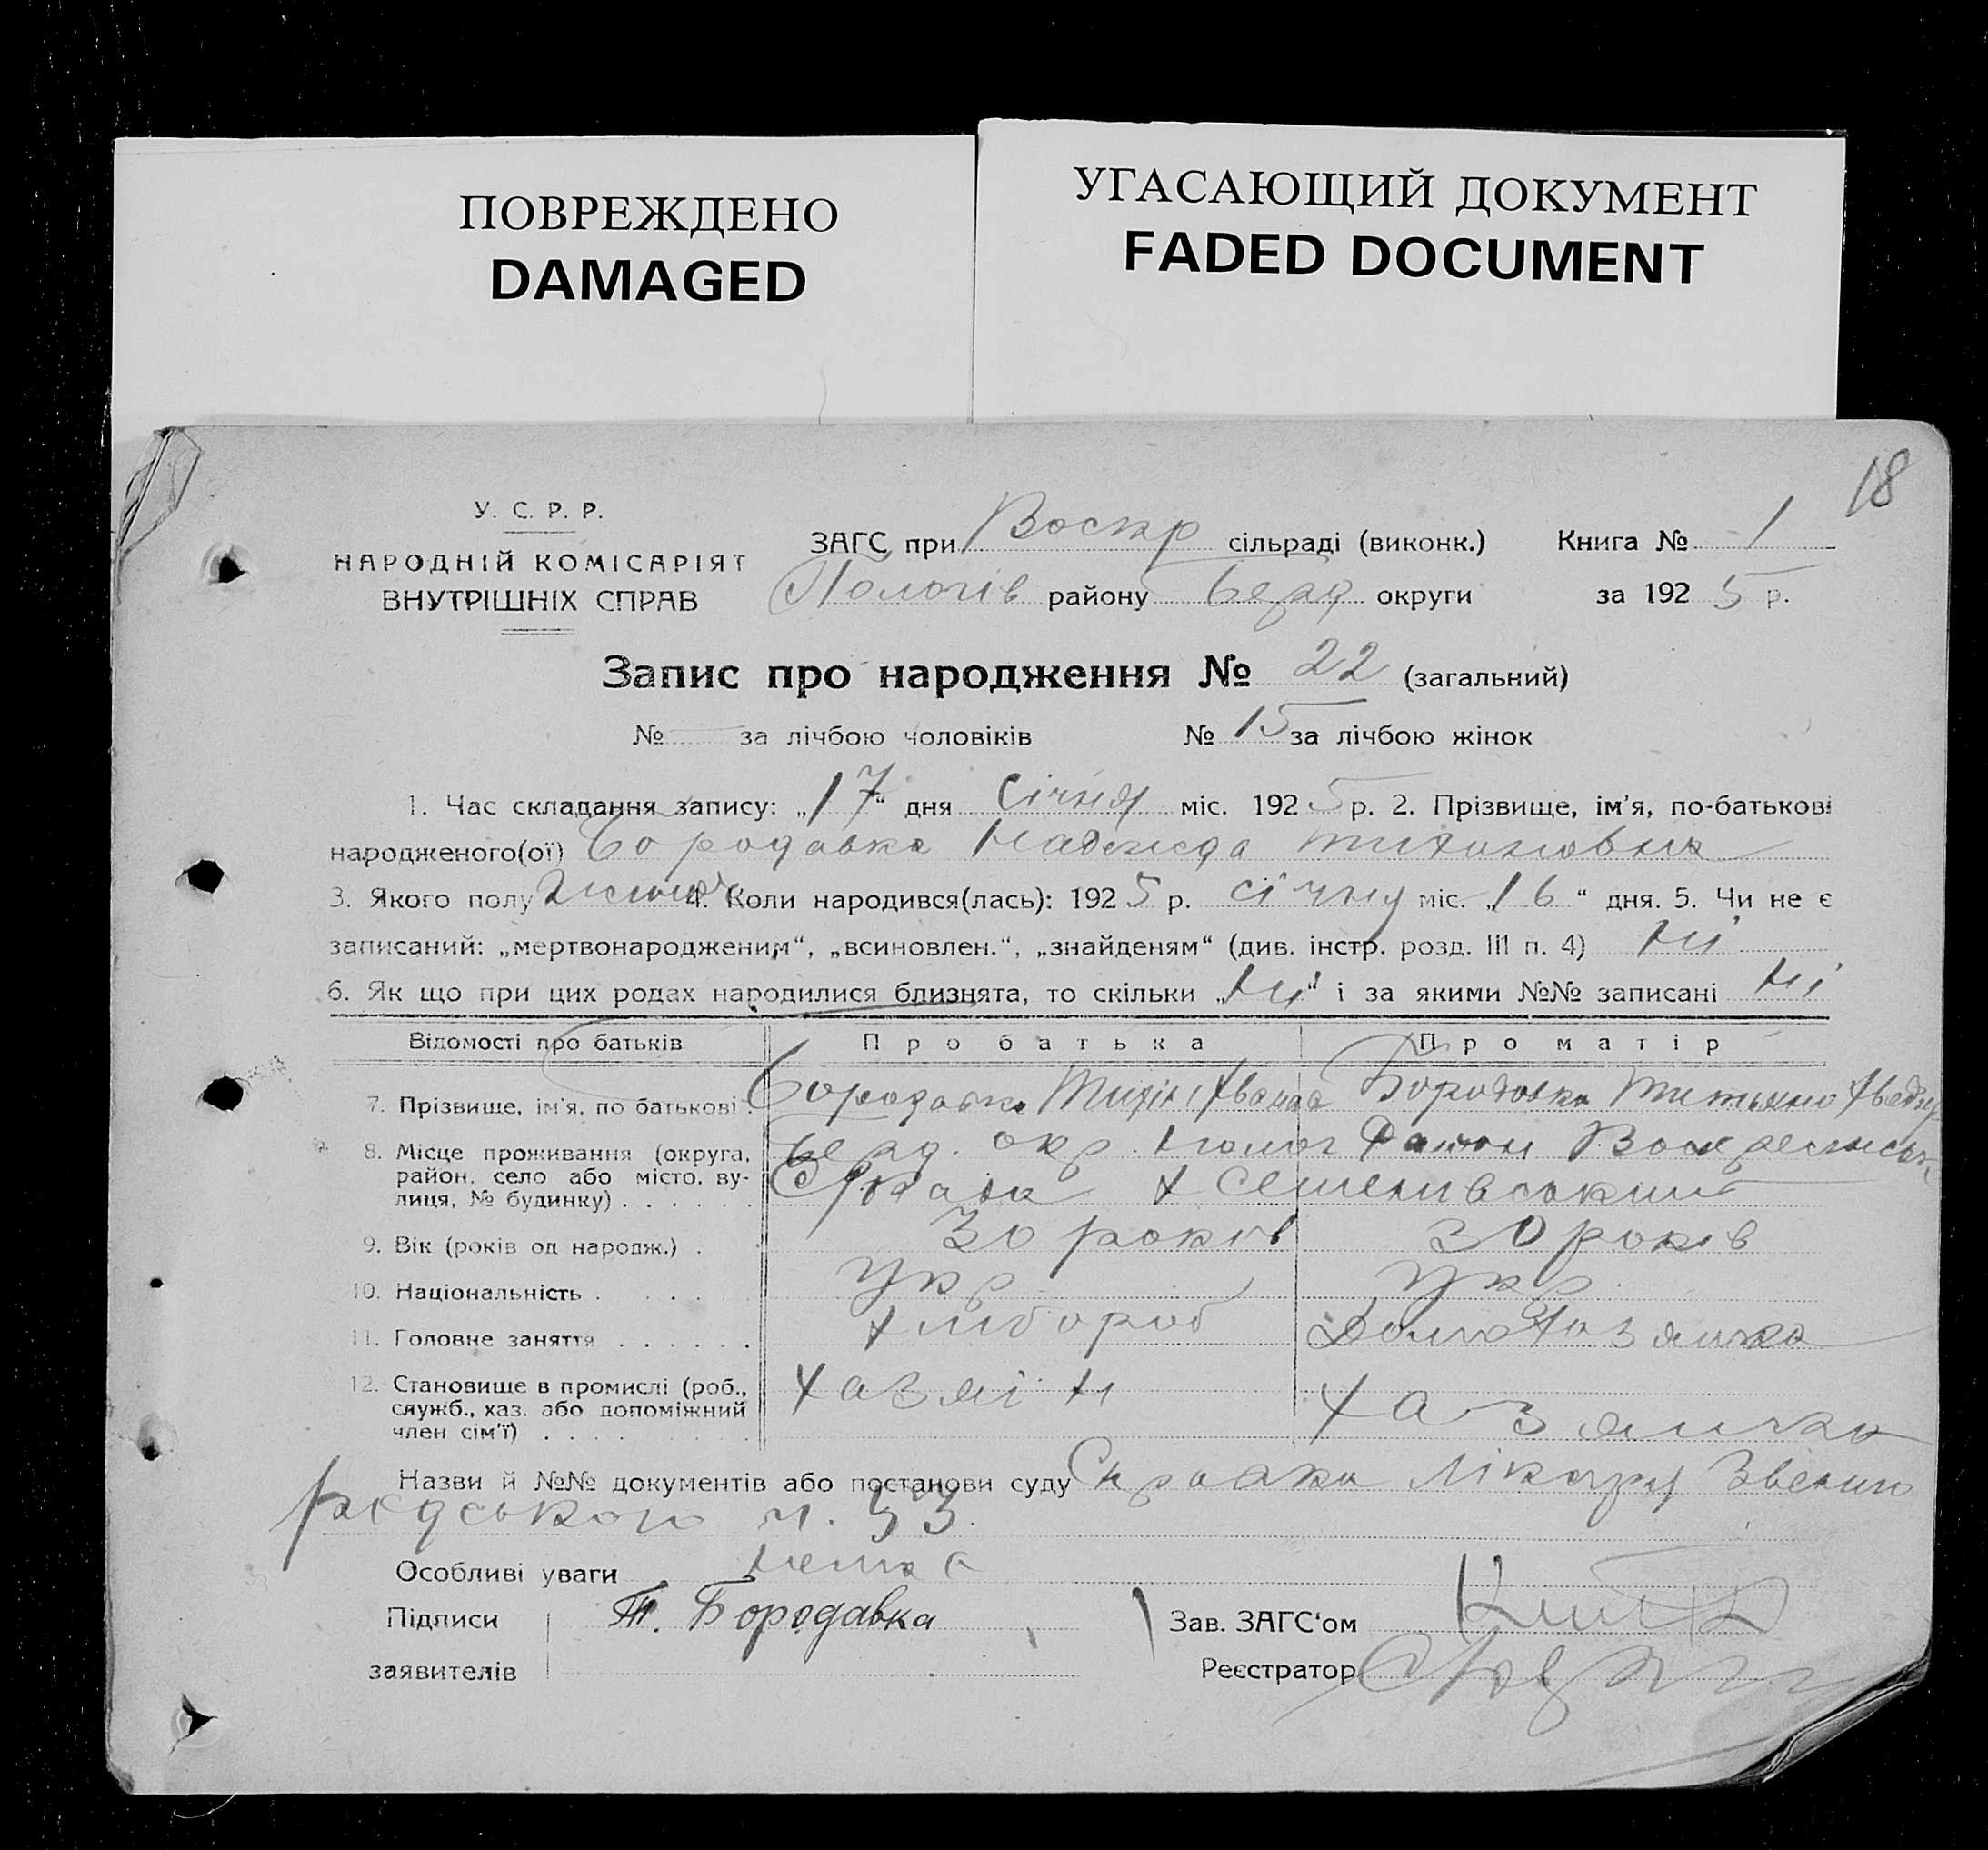 ПОВРЕЖДЕНО
DAMAGED
УГАСАЮЩИЙ ДОКУМЕНТ
FADED DOCUMENT
18
У. С. Р. Р.
НАРОДНІЙ КОМІСАРІЯТ
ВНУТРІШНІХ СПРАВ
ЗАГС при Воскр сільраді (виконк.) Книга № 1
Пологів району Берд округи за 1925 р.
Запис про народження № 22 (загальний)
№ — за лічбою чоловіків № 15 за лічбою жінок
1. Час складання запису: „17“ дня Січня міс. 1925 р. 2. Прізвище, ім'я, по-батькові
народженого(ої) Бородавка Надежда Тихоновна
3. Якого полу жіноч 4. Коли народився(лась): 1925 р. січня міс. „16“ дня. 5. Чи не є
записаний: „мертвонародженим“, „всиновлен.“, „знайденям“ (див. інстр. розд. III п. 4) Ні
6. Як що при цих родах народилися близнята, то скільки „Ні“ і за якими №№ записані Ні
Відомості про батьків Про батька Про матір
7. Прізвище, ім'я, по батькові. Бородавка Тихін Бородовка Титьяна
8. Місце проживання (округа, район, село або місто, вулиця, № будинку) Берд. окр. Полог Район
9. Вік (років од народж.) 30 років 30 років
10. Національність Укр Укр.
11. Головне заняття Хлібороб Домохазяйка
12. Становище в промислі (роб., служб., хаз. або допоміжний член сім'ї) Хазяїн Хазяйка
Назви й №№ документів або постанови суду Справка Лікаря
ч. 53.
Особливі уваги немає
Підписи Т. Бородавка Зав. ЗАГС'ом
заявителів Реєстратор